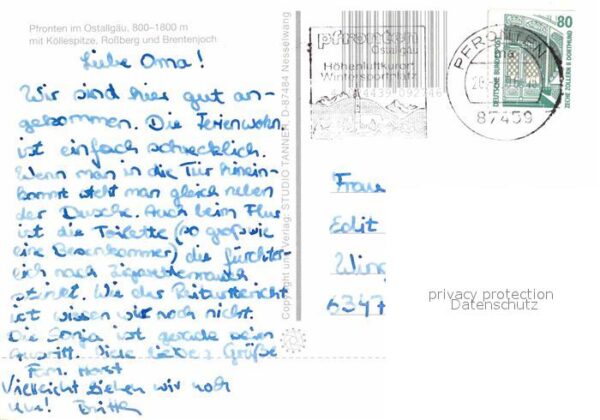 Pfronten im Ostallgäu, 800–1800 m
mit Köllespitze, Roßberg und Brentenjoch
Liebe Oma!
Wir sind hier gut an-
gekommen. Die Ferienwohn.
ist einfach schrecklich.
Wenn man in die Tür hinein-
kommt steht man gleich neben
der Dusche. Auch beim Flur
ist die Toilette (so groß wie
eine Besenkammer) die fürchter-
lich nach Zigarettenrauch
stinkt. Wie der Reitunterricht
ist wissen wir noch nicht.
Die Sonja ist gerade beim
Ausritt. Viele liebe Grüße
Fam. Horst
Vielleicht ziehen wir noch
um! Britta
Copyright und Verlag: STUDIO TANNER, D-87484 Nesselwang
pfronten
Ostallgäu
Höhenluftkurort
Wintersportplatz
PFRONTEN
87459
80
DEUTSCHE BUNDESPOST
ZECHE ZOLLERN II DORTMUND
Frau
Edit
Wing
6347
privacy protection
Datenschutz